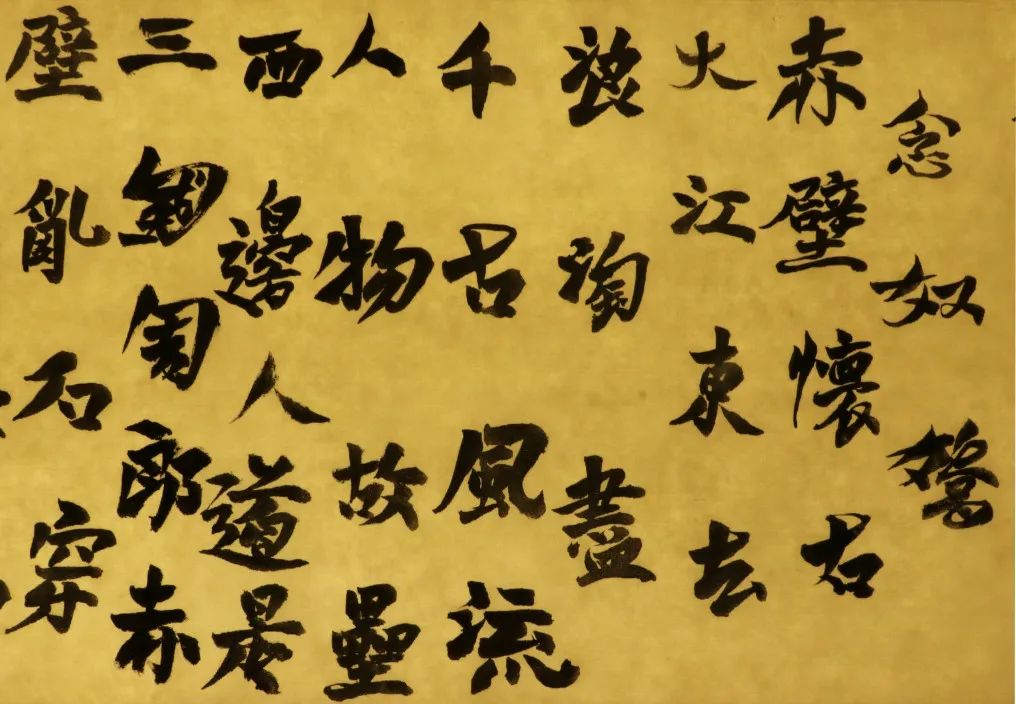 念奴嬌
赤壁懷古
大江東去
浪淘盡
千古風流
人物故壘
西邊人道是
三國周郎赤
壁亂石穿